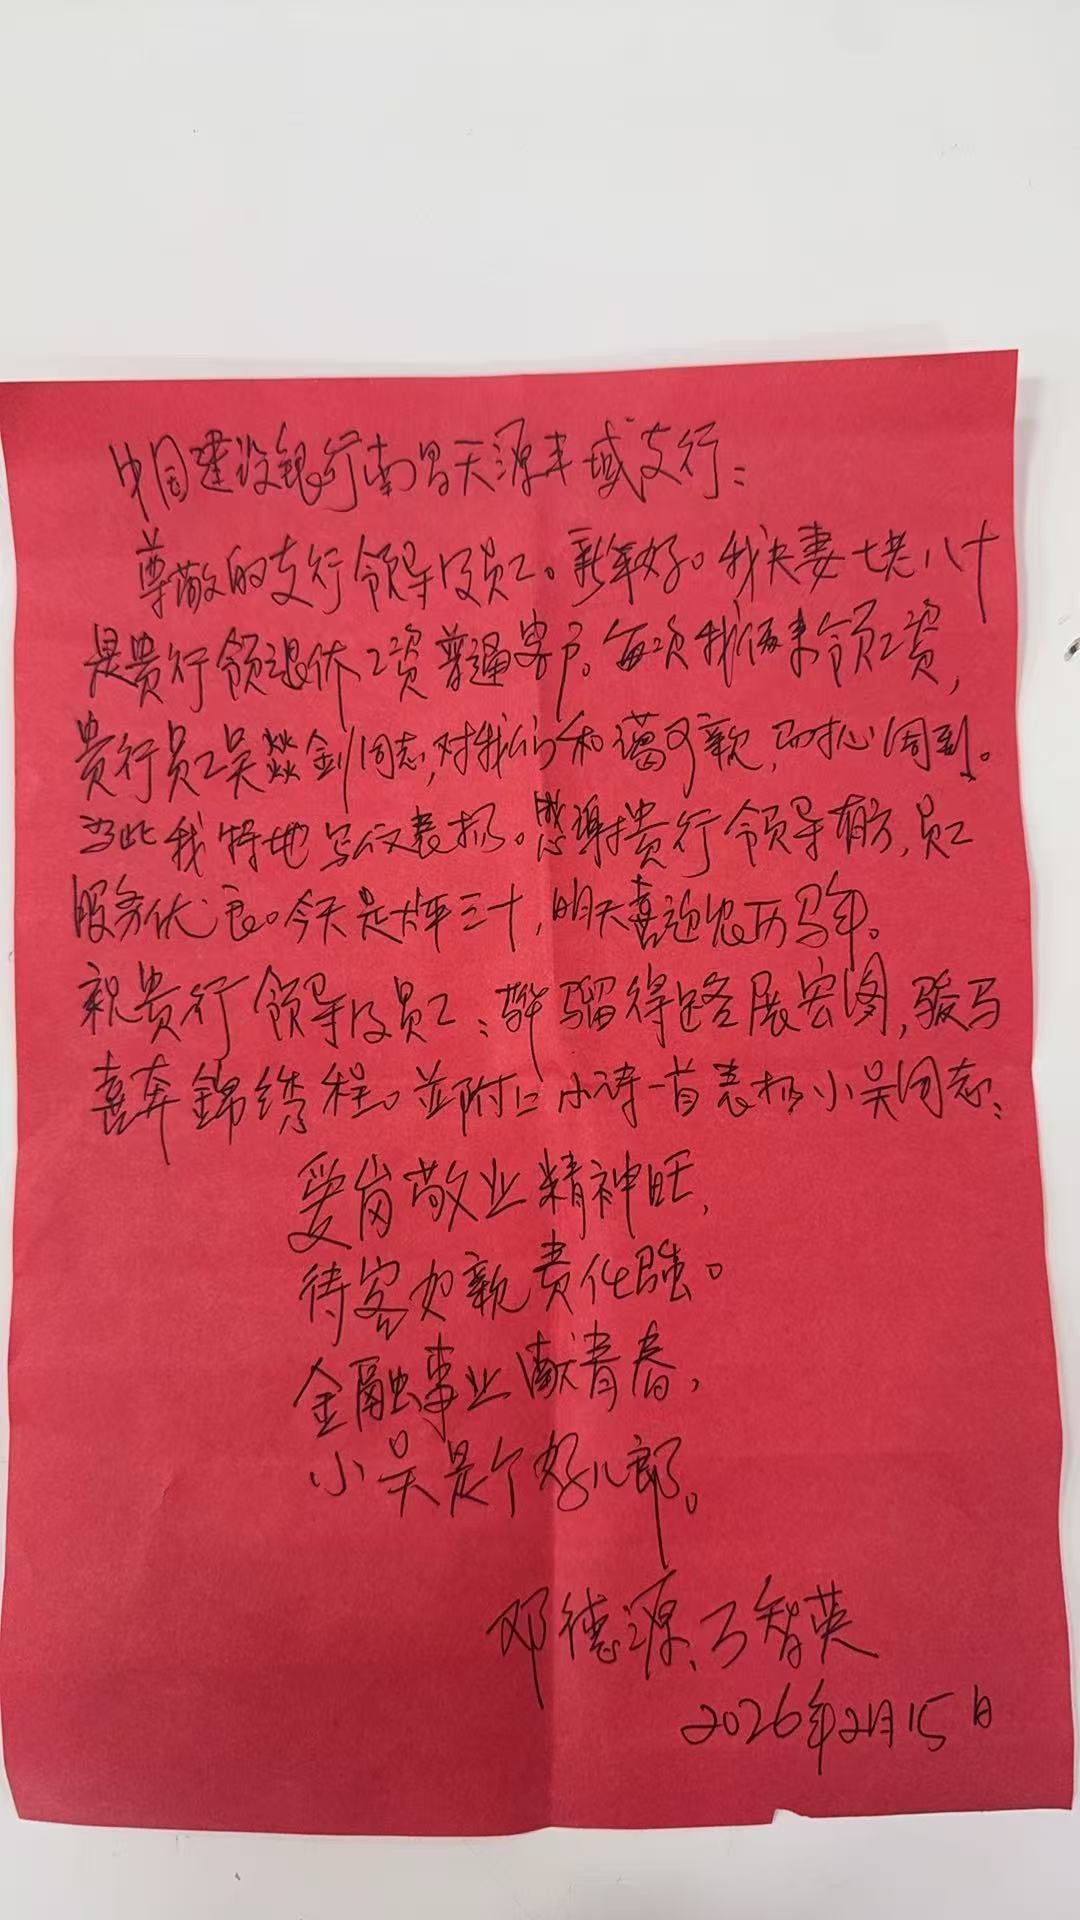 中国建设银行南昌天源丰域支行：
尊敬的支行领导及员工。新年好。我夫妻七老八十
是贵行领退休工资普通客户。每次我俩来领工资，
贵行员工吴燚剑同志，对我们和蔼可亲，耐心周到。
为此我特地写公文表扬。感谢贵行领导有方，员工
服务优良。今天是大年三十，明天喜迎农历马年。
祝贵行领导及员工：骅骝得路展宏图，骏马
喜奔錦绣程。並附上小诗一首表扬小吴同志：
爱岗敬业精神旺，
待客如亲责任强。
金融事业献青春，
小吴是个好儿郎。
邓德源、丁智英
2026年2月15日